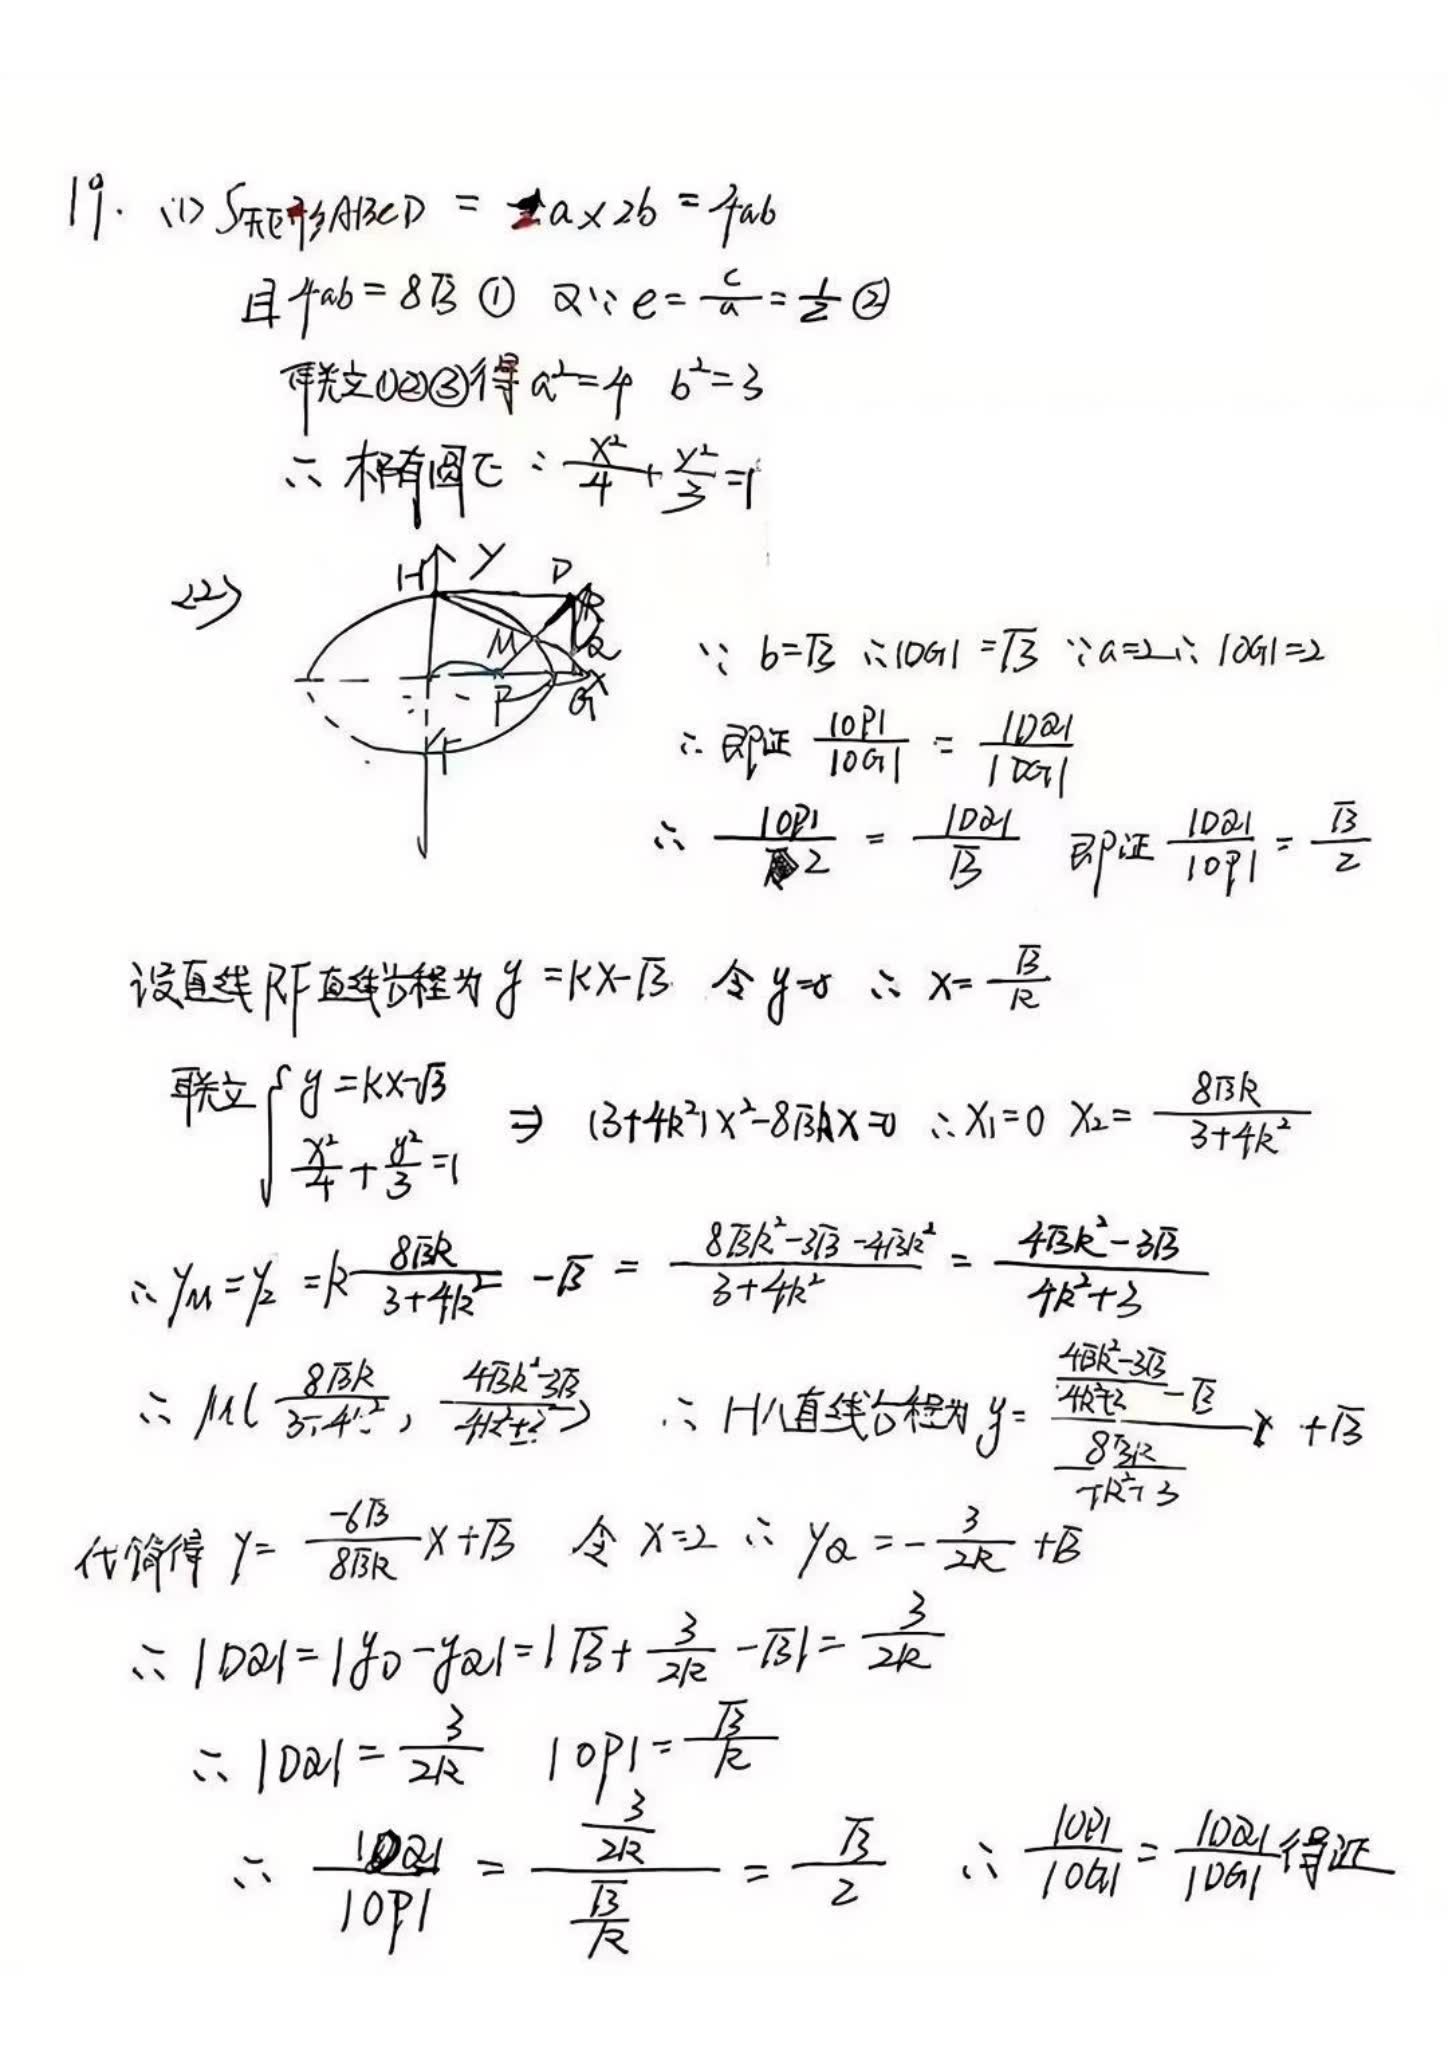 19. (1) S矩形ABCD = 2a×2b = 4ab
且4ab = 8√3 ① 又∵ e = c/a = 1/2 ②
联立①②③得 a²=4 b²=3
∴ 椭圆E: x²/4 + y²/3 = 1
(2)
H Y D
R
M Q
P G X
F
∵ b=√3 ∴|DG|=√3 ∵a=2∴ |OG|=2
∴ 即证 |OP|/|OG| = |DQ|/|DG|
∴ |OP|/2 = |DQ|/√3 即证 |DQ|/|OP| = √3/2
设直线RF直线方程为 y = kx-√3 令 y=0 ∴ x = √3/k
联立 { y = kx-√3
x²/4 + y²/3 = 1 ⇒ (3+4k²)x²-8√3kx=0 ∴x₁=0 x₂= 8√3k/(3+4k²)
∴ yM = y₂ = k 8√3k/(3+4k²) - √3 = (8√3k²-3√3-4√3k²)/(3+4k²) = (4√3k²-3√3)/(4k²+3)
∴ M( 8√3k/(3+4k²) , (4√3k²-3√3)/(4k²+3) ) ∴ HM直线方程为 y = ((4√3k²-3√3)/(4k²+3) - √3)/(8√3k/(4k²+3)) x + √3
化简得 y = -6√3/(8√3k) x+√3 令 x=2 ∴ yQ = -3/(2k) + √3
∴ |DQ| = |yD-yQ| = |√3 + 3/(2k) - √3| = 3/(2k)
∴ |DQ| = 3/(2k) |OP| = √3/k
∴ |DQ|/|OP| = (3/(2k))/(√3/k) = √3/2 ∴ |OP|/|OG| = |DQ|/|DG| 得证